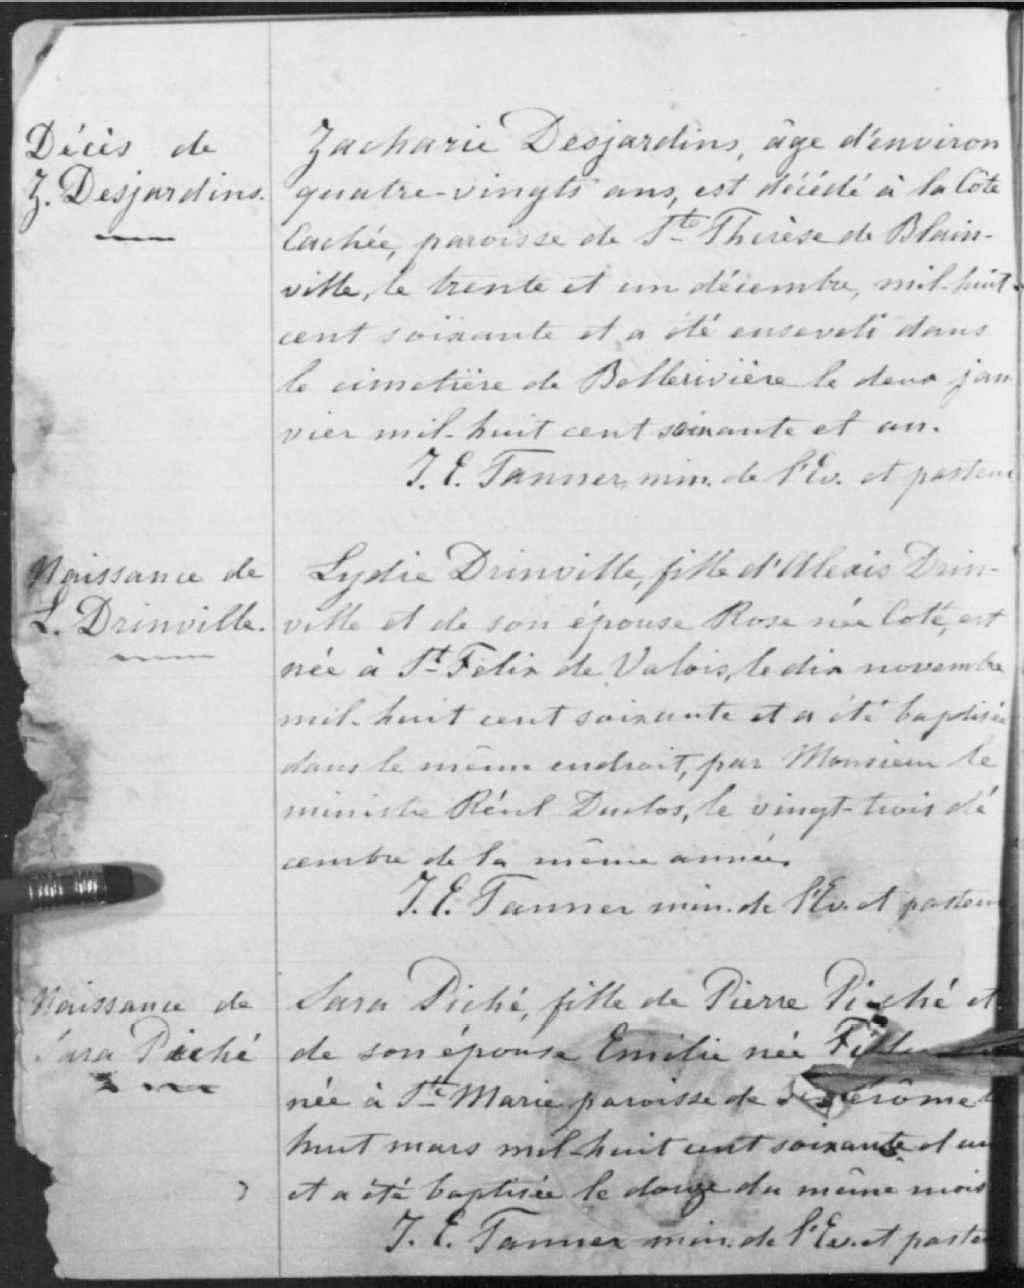 Décès de
Z. Desjardins.
Zacharie Desjardins, âge d'environ
quatre-vingts ans, est décédé à la Côte
Cachée, paroisse de Ste Thérèse de Blain-
ville, le trente et un décembre, mil-huit-
cent soixante et a été enseveli dans
le cimetière de Bellerivière le deux jan
vier mil-huit cent soixante et un.
J. E. Tanner, min. de l'Ev. et pasteur
Naissance de
L. Drinville.
Lydie Drinville, fille d'Alexis Drin-
ville et de son épouse Rose née Coté, est
née à St Felix de Valois, le dix novembre
mil-huit cent soixante et a été baptisée
dans le même endroit, par Monsieur le
ministre Réul Duclos, le vingt-trois dé
cembre de la même année.
J. E. Tanner min. de l'Ev. et pasteur
Naissance de
Sara Piché
Sara Piché, fille de Pierre Piché et
de son épouse Emilie née
née à Ste Marie paroisse de St Jérôme
huit mars mil huit cent soixante et un
et a été baptisée le douze du même mois
J. E. Tanner min. de l'Ev. et paste